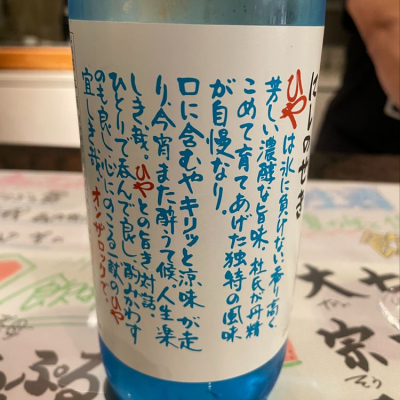 にいのせき
ひやは氷に負けない香り高く
芳しい濃醇な旨味 杜氏が丹精
こめて育てあげた独特の風味
が自慢なり。
口に含むやキリッと涼味が走
り、今宵また酔うて候 人生楽
しき哉。ひやとの旨き対話。
ひとりで呑んで良し、酌みかわす
のも良し、心にのこる一献のひや
宜しき哉 オンザロックで、
大
宗